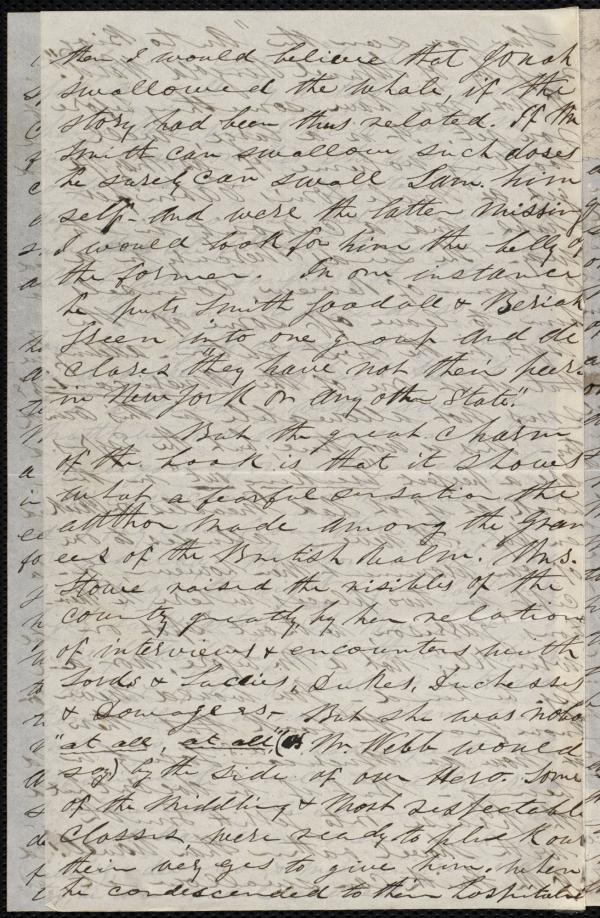 then I would believe that Jonah
swallowed the whale, if the
story had been thus related. If Mr
Smith can swallow such doses
he surely can swall Sam. him
self- And were the latter missing
I would look for him the belly of
the former. In one instance
he puts Smith Goodall & Beriah
Green into one group and de
clares "they have not their peers
in New York or any other State."
But the great charm
of the book is that it shows
what a fearful sensation the
author made among the Gran
ees of the British Realm. Mrs.
Stowe raised the risibles of the
county greatly by her relation
of interviews & encounters with
Lords & Ladies, Dukes, Duchesses
& Dowagers- But she was
"at all, at all," (as Mr. Webb would
say) by the side of our Hero. Some
of the middling & most respectable
classes, were ready to pluck out
their very eyes to give him, when
he condescended to their hospitali